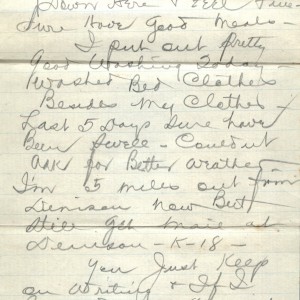 Down Here & Feel Fine -
Sure Have Good Meals -
I put out Pretty
Good Washing Today -
Washed Bed Clothes
Besides My Clothes -
Last 5 Days Sure have
Been Swell - Couldnt
ask for Better Weather
I'm 5 miles out from
Denison Now But
Still get mail at
Denison - K-18 -
You Just Keep
on Writing & If I